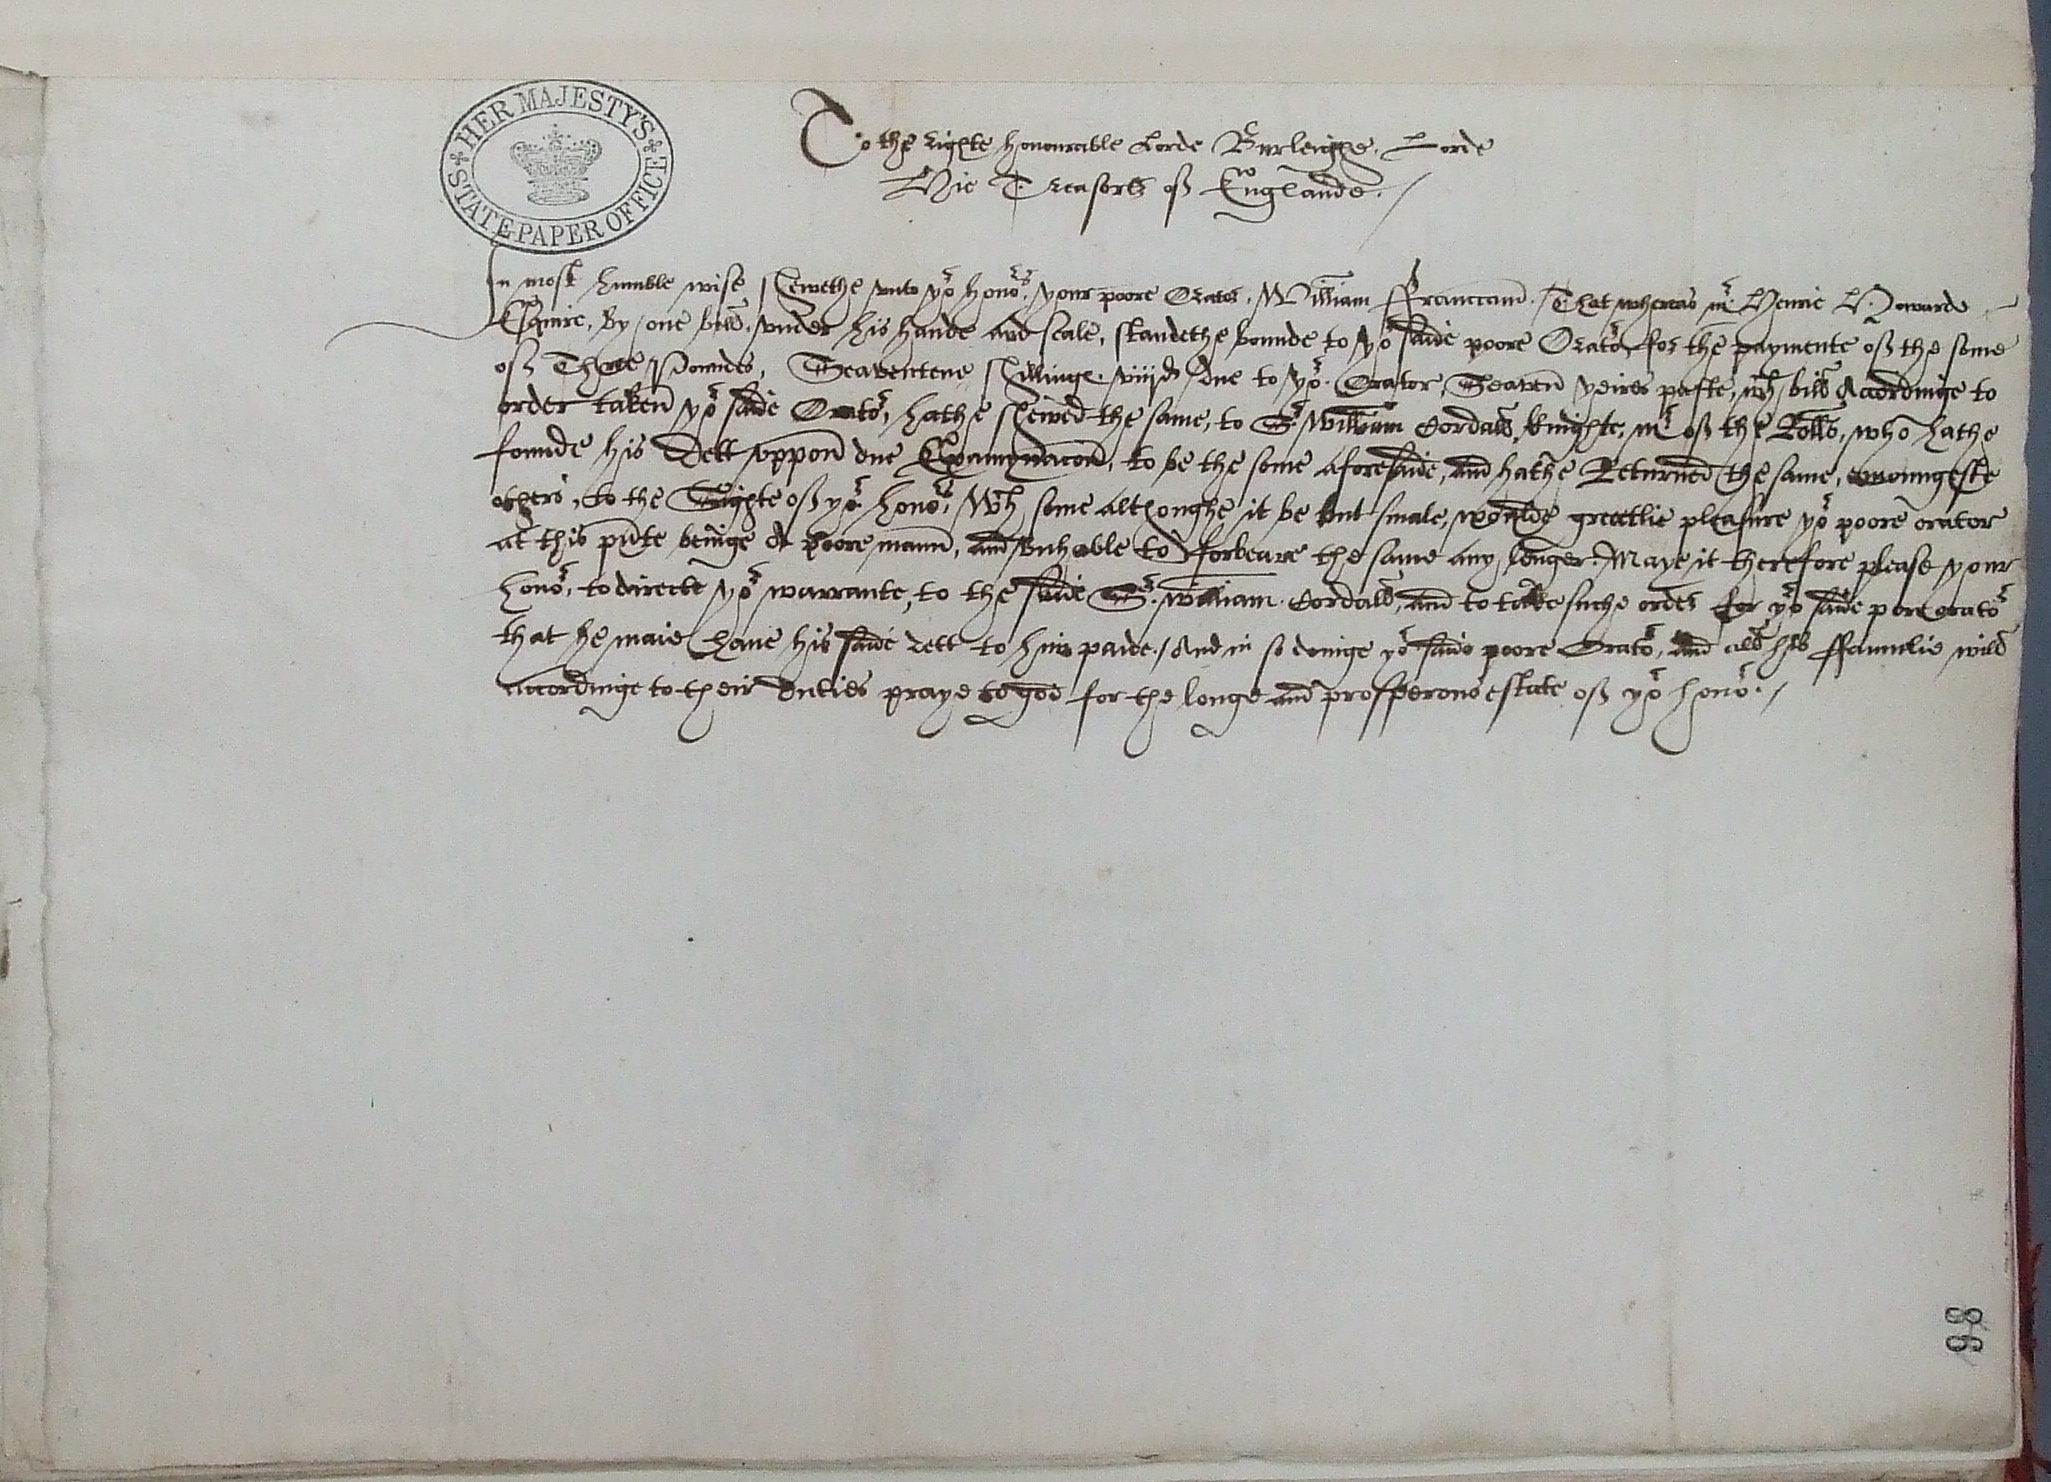 HER MAJESTY'S
STATE PAPER OFFICE
To the righte honourable Lorde Burleighe, Lorde
Hie Treasorer of Englande./
In most humble wise shewethe unto yor honor, your poore Orator, William Franccam. That whereas mr Henrie Howarde
Esquire, By one bill, under his hande and seale, standethe bounde to yor saide poore Orator, for the paymente of the some
of Three Poundes, Seaventene shillinge viijd due to yor Orator, Seaven yeires paste, wch bill Accordinge to
order taken yor saide Orator, hathe shewed the same, to Sr William Cordall, knighte, mr of the Rolls, who hathe
founde his Dett uppon due Examynacon, to be the some aforesaide, and hathe Returned the same, emoungeste
others, to the Sighte of yor honor, Wch some althoughe it be but smale, woulde greatlie pleasure yor poore orator
at this pnte beinge A poore mann, and Unhable to forbeare the same any lenger. Maye it therefore please your
honor, to directe yor warrante, to the saide Sr William Cordall, and to take suche order for yor saide pore orator
that he maie have his saide dett to him paide./ And in so doinge yor saide poore Orator, and all his ffamilie will
accordinge to their duties praye to god for the longe and prosperous estate of yor honor./
98